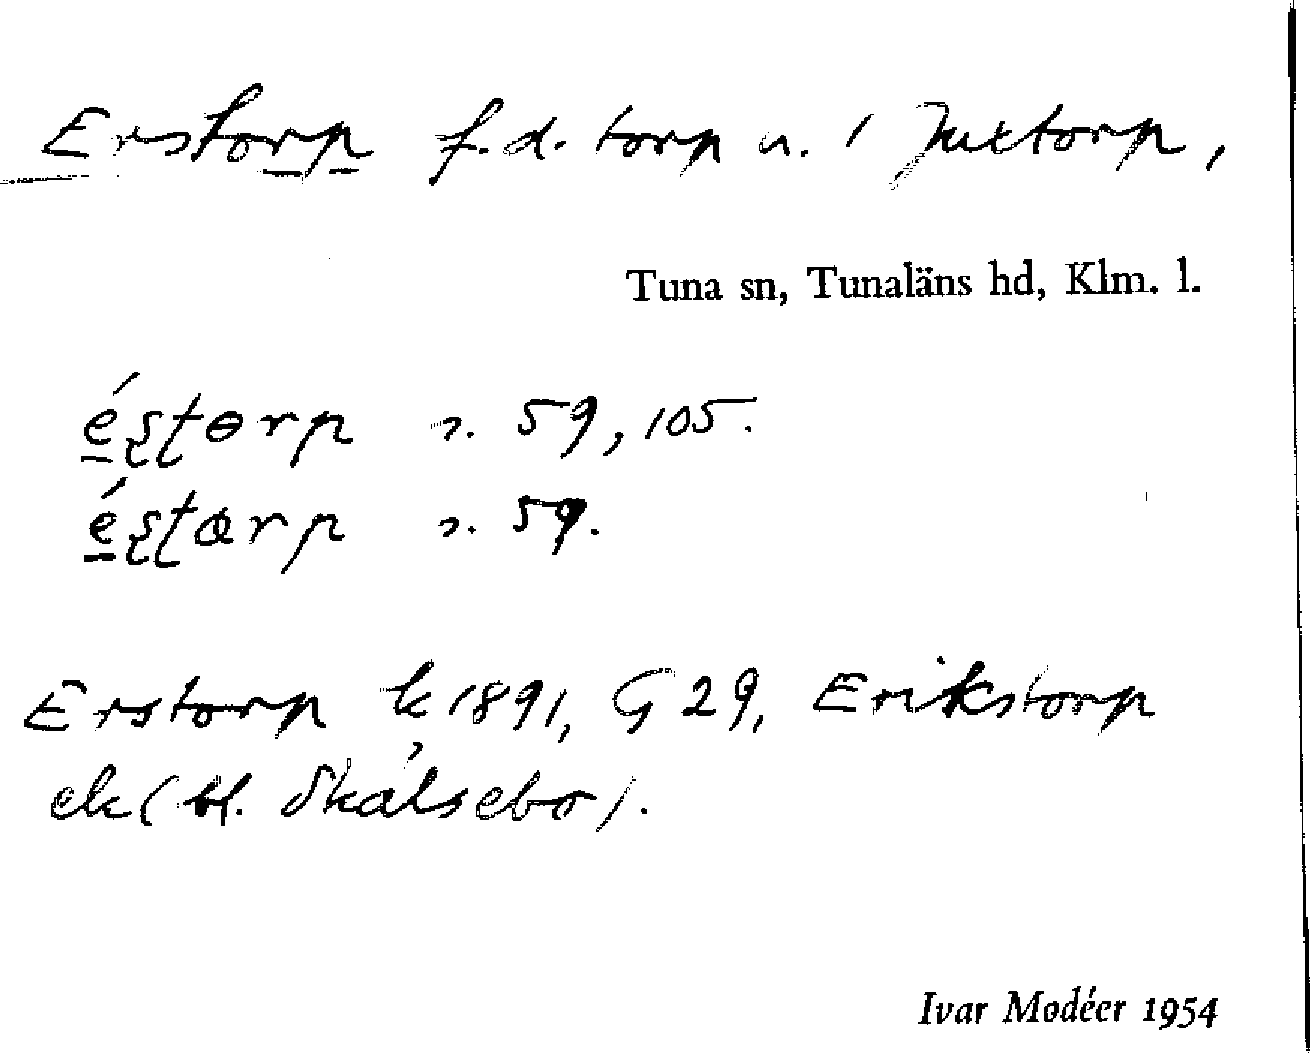 Erstorp f.d. torp u. 1 Juxtorp,
Tuna sn, Tunaläns hd, Klm. l.
é̱ʂʈɵrp s. 59, 105.
é̱ʂʈærp s. 59.
Erstorp k 1891, G 29, Erikstorp
ek (bl. Skälsebo).
Ivar Modéer 1954